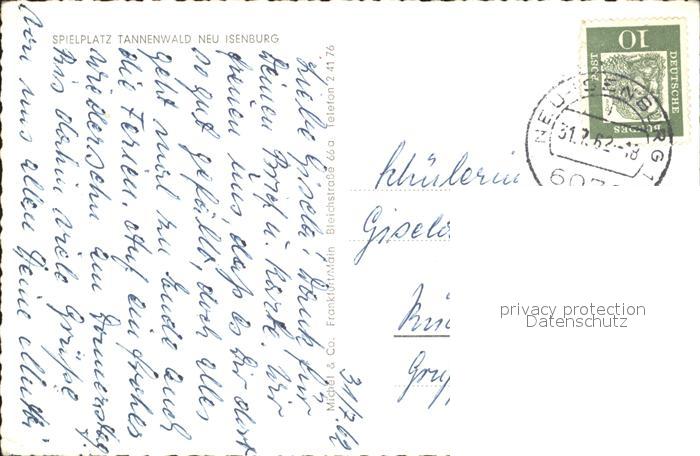 SPIELPLATZ TANNENWALD NEU ISENBURG
Liebe Gisela! Dank für
Deinen Brief u. Karte. Wir
freuen uns, dass es Dir dort
so gut gefällt, doch alles
geht mal zu Ende auch
die Ferien. Auf ein frohes
Wiedersehn am Donnerstag.
Bis dahin viele Grüße
von uns allen Deine Mutti
31/7.62
Michel & Co. Frankfurt/Main Bleichstraße 66a Telefon 2 41 76
DEUTSCHE
BUNDESPOST
10
NEU-ISENBURG 1
31.7.62-18
607
Schülerin
Gisela
privacy protection
Datenschutz